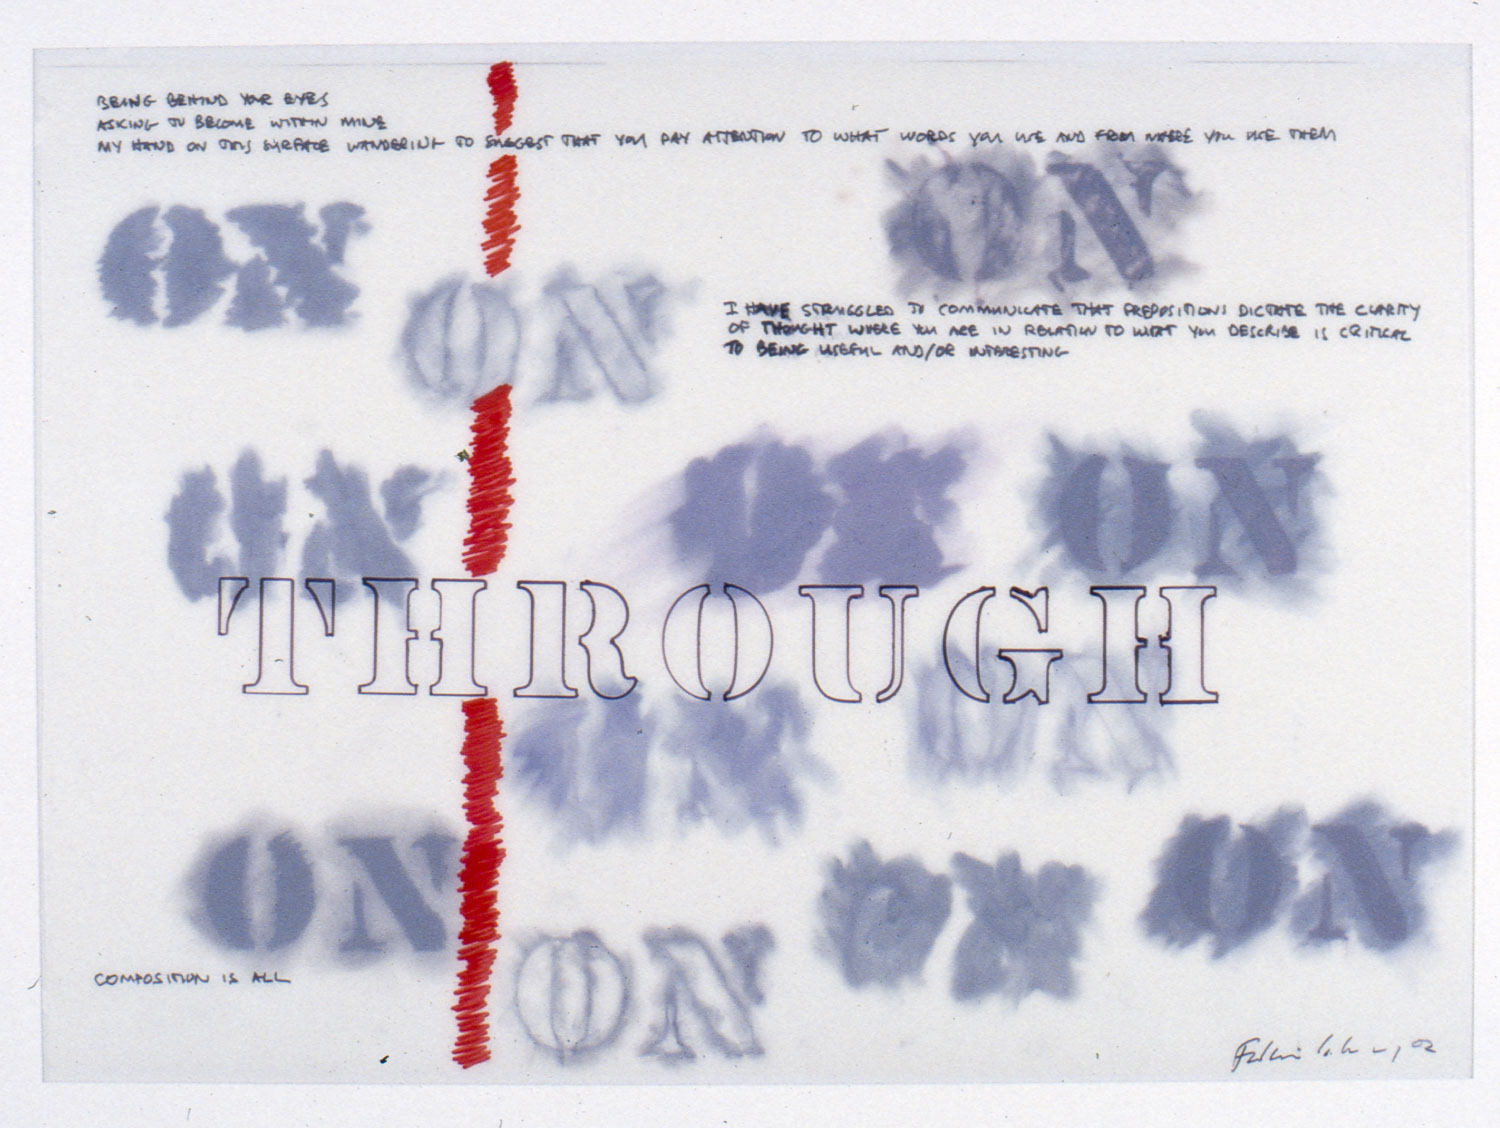 BEING BEHIND YOUR EYES
ASKING TO BECOME WITHIN MINE
MY HAND ON THIS SURFACE WANDERING TO SUGGEST THAT YOU PAY ATTENTION TO WHAT WORDS YOU USE AND FROM WHERE YOU USE THEM
ON
ON
ON
I HAVE STRUGGLED TO COMMUNICATE THAT PREPOSITIONS DICTATE THE CLARITY
OF THOUGHT WHERE YOU ARE IN RELATION TO WHAT YOU DESCRIBE IS CRITICAL
TO BEING USEFUL AND/OR INTERESTING
ON
ON
ON
THROUGH
ON
ON
ON
ON
ON
ON
COMPOSITION IS ALL
02